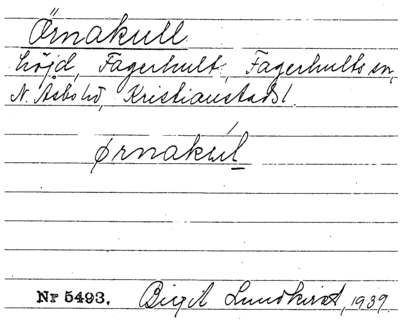 Örnakull
höjd, Fagerhult, Fagerhults sn,
N. Åsbo hd, Kristianstads l.
ørnakul
Nr 5493. Birgit Lundkvist, 1939